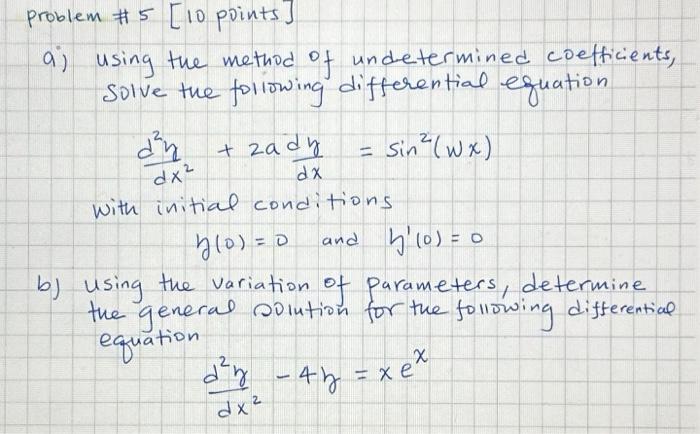 problem # 5 [10 points]
a) using the method of undetermined coefficients,
solve the following differential equation
d²y/dx² + 2a dy/dx = sin²(wx)
with initial conditions
y(0) = 0 and y'(0) = 0
b) using the variation of parameters, determine
the general solution for the following differential
equation
d²y/dx² - 4y = xeˣ